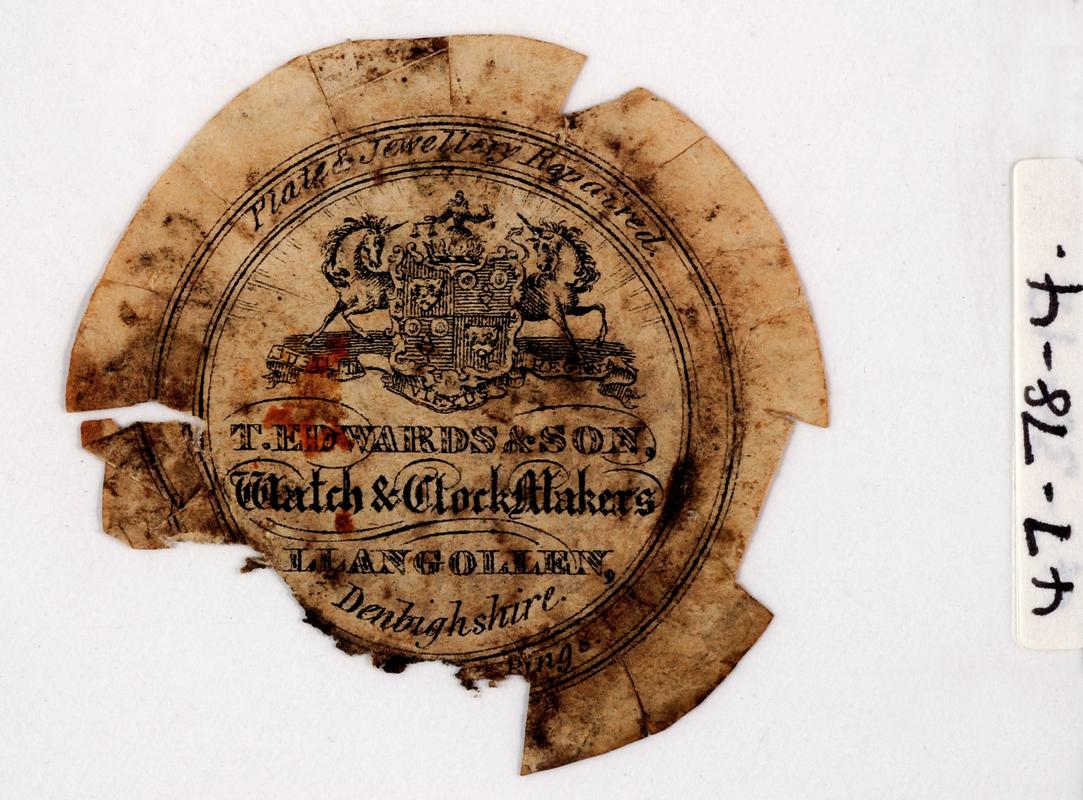 Plate & Jewellery Repaired.
T. EDWARDS & SON,
Watch & Clock Makers
LLANGOLLEN,
Denbighshire.
Rings
47-78-4.